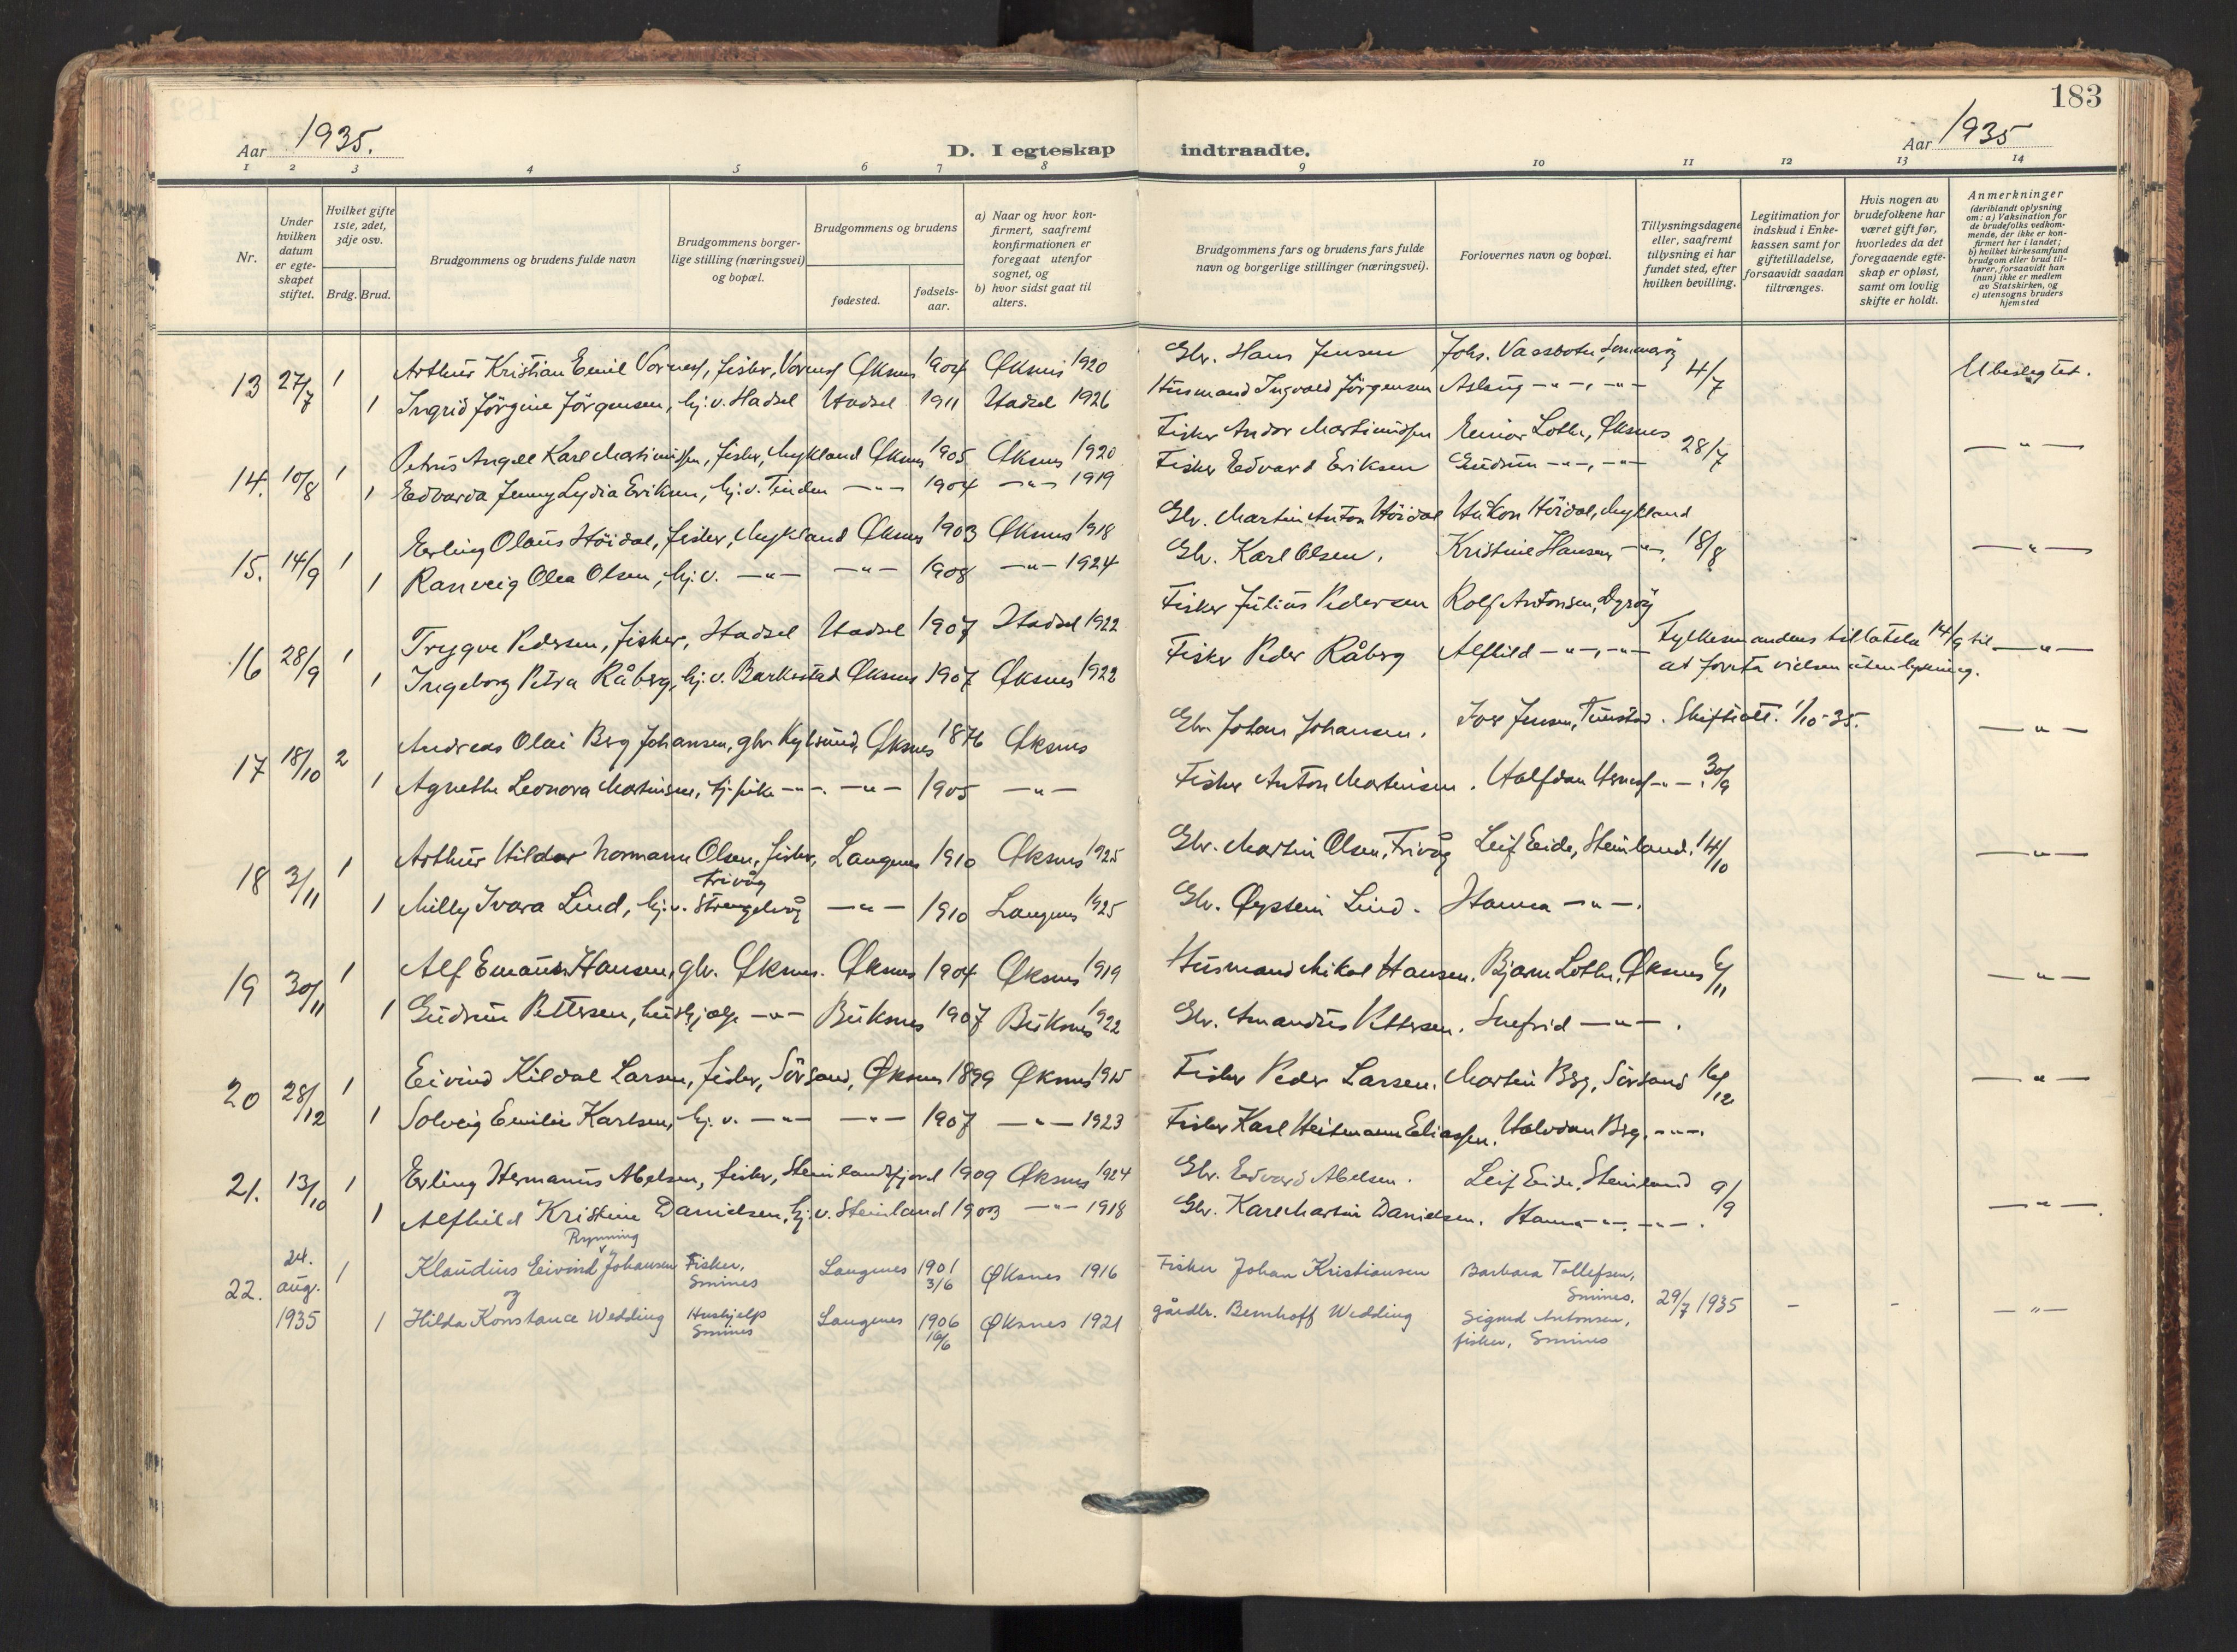 183
Aar 1935.
D. I egteskap indtraadte.
Aar 1935
1 2 3 4 5 6 7 8 9 10 11 12 13 14
Nr.
Under hvilken datum er egte-skapet stiftet.
Hvilket gifte 1ste, 2det, 3dje osv.
Brdg. Brud.
Brudgommens og brudens fulde navn
Brudgommens borger-lige stilling (næringsvei) og bopæl.
Brudgommens og brudens
fødested.
fødsels-aar.
a) Naar og hvor kon-firmert, saafremt konfirmationen er foregaat utenfor sognet, og
b) hvor sidst gaat til alters.
Brudgommens fars og brudens fars fulde navn og borgerlige stillinger (næringsvei).
Forlovernes navn og bopæl.
Tillysningsdagene eller, saafremt tillysning ei har fundet sted, efter hvilken bevilling.
Legitimation for indskud i Enke-kassen samt for giftetilladelse, forsaavidt saadan tiltrænges.
Hvis nogen av brudefolkene har været gift før, hvorledes da det foregaaende egte-skap er opløst, samt om lovlig skifte er holdt.
Anmerkninger (deriblandt oplysning om: a) Vaksination for de brudefolks vedkom-mende, der ikke er kon-firmert her i landet; b) hvilket kirkesamfund brudgom eller brud til-hører, forsaavidt han (hun) ikke er medlem av Statskirken, og c) utensogns bruders hjemsted
13 27/7 1 Arthur Kristian Emil Vornes, fisker, Vornes Øksnes 1904 Øksnes 1920 Gbr. Hans Jensen Johs. Vassbotn, Sommarøy 4/7 Ubeslegtet.
1 Ingrid Jørgine Jørgensen, hj.v. Hadsel Hadsel 1911 Hadsel 1926 Husmand Ingvald Jørgensen Aslaug -"-, -"-
14. 10/8 1 Petrus Angell Karl Martinussen, fisker, Mykland Øksnes 1905 Øksnes 1920 Fisker Andor Martinussen Einar Lothe, Øksnes 28/7 -"-
1 Edvarda Jenny Lydia Eriksen, hj.v. Tinden -"- 1904 -"- 1919 Fisker Edvard Eriksen Gudrun -"-, -"-
15. 14/9 1 Erling Olaus Höidal, fisker, Mykland Øksnes 1903 Øksnes 1918 Gbr. Martin Anton Höidal Håkon Höidal, Mykland 18/8 -"-
1 Ranveig Olea Olsen, hj.v. -"- -"- 1908 -"- 1924 Gbr. Karl Olsen. Kristine Hansen -"-.
16 28/9 1 Trygve Pedersen, fisker, Hadsel Hadsel 1907 Hadsel 1922 Fisker Julius Pedersen Rolf Antonsen, Dyrøy Fylkesmandens tillatelse 14/9 til -"-
1 Ingeborg Petra Råberg, hj.v. Barkestad Øksnes 1907 Øksnes 1922 Fisker Peder Råberg Alfhild -"-, -"- at foreta vielsen uten lysning.
17 18/10 2 Andreas Olai Berg Johansen, gbr. Øksnes 1876 Øksnes Gbr. Johan Johansen. Jensen, Tunstad. Skifteatt. 1/10-35. -"-
1 Agnethe Leonora Martinsen, hj.pike -"-. -"- 1905 -"- Fisker Anton Martinsen. Halfdan -"-. 30/9
18 3/11 1 Arthur Hildor Normann Olsen, fisker, Langenes 1910 Øksnes 1925 Gbr. Martin Olsen, Frivåg Leif Eide, Steinland. 14/10 -"-
Frivåg
1 Milly Ivara Lind, hj.v. Strengelvåg -"- 1910 Langenes 1925 Gbr. Øystein Lind. Hanna -"-.
19 30/11 1 Alf Emanuel Hansen, gbr. Øksnes. Øksnes 1904 Øksnes 1919 Husmand Mikal Hansen. Bjarne Lothe, Øksnes 6/11 -"-
1 Gudrun Pettersen, hushjælp -"- Buksnes 1907 Buksnes 1922 Gbr. Amandus Pettersen. Snefrid -"-.
20 28/12 1 Eivind Kildal Larsen, fisker, Sörsand, Øksnes 1899 Øksnes 1915 Fisker Peder Larsen. Martin Berg, Sörsand 16/12 -"-
1 Solveig Emilie Karlsen, hj.v. -"- -"- 1907 -"- 1923 Fisker Karl Heitmann Eliassen. Halvdan Berg. -"-.
21. 13/10 1 Erling Hermanus Abelsen, fisker, Steinlandsfjord 1909 Øksnes 1924 Gbr. Edvard Abelsen. Leif Eide, Steinland 9/9 -"-.
1 Alfhild Kristine Danielsen, hj.v. Steinland 1903 -"- 1918 Gbr. Karl Martin Danielsen. Hanna -"-. -"-.
Rynning
22. 24. aug. 1935 1 Klaudius Eivind Johansen Fisker, Smines Langenes 1901 3/6 Øksnes 1916 Fisker Johan Kristiansen Barbara Tollefsen, Smines. 29/7 1935 - - -"-
og
1 Hilda Konstance Wedding Hushjelp Smines Langenes 1906 16/6 Øksnes 1921 gårdbr. Bernhoff Wedding Sigurd Antonsen, fisker, Smines